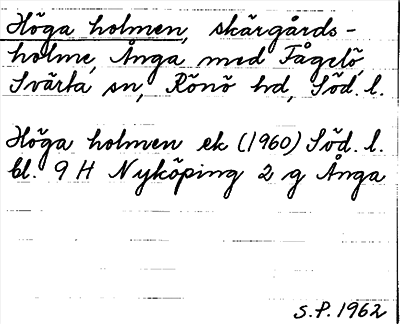 Höga holmen, skärgårds-
holme, Ånga med Fågelö,
Svärta sn, Rönö hd, Söd. l.
Höga holmen ek (1960) Söd. l.
bl. 9 H Nyköping 2 g Ånga
S.P. 1962